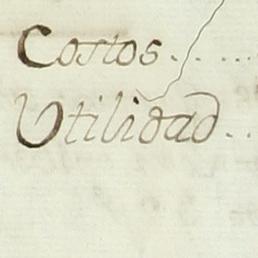 Costos.....
Utilidad..